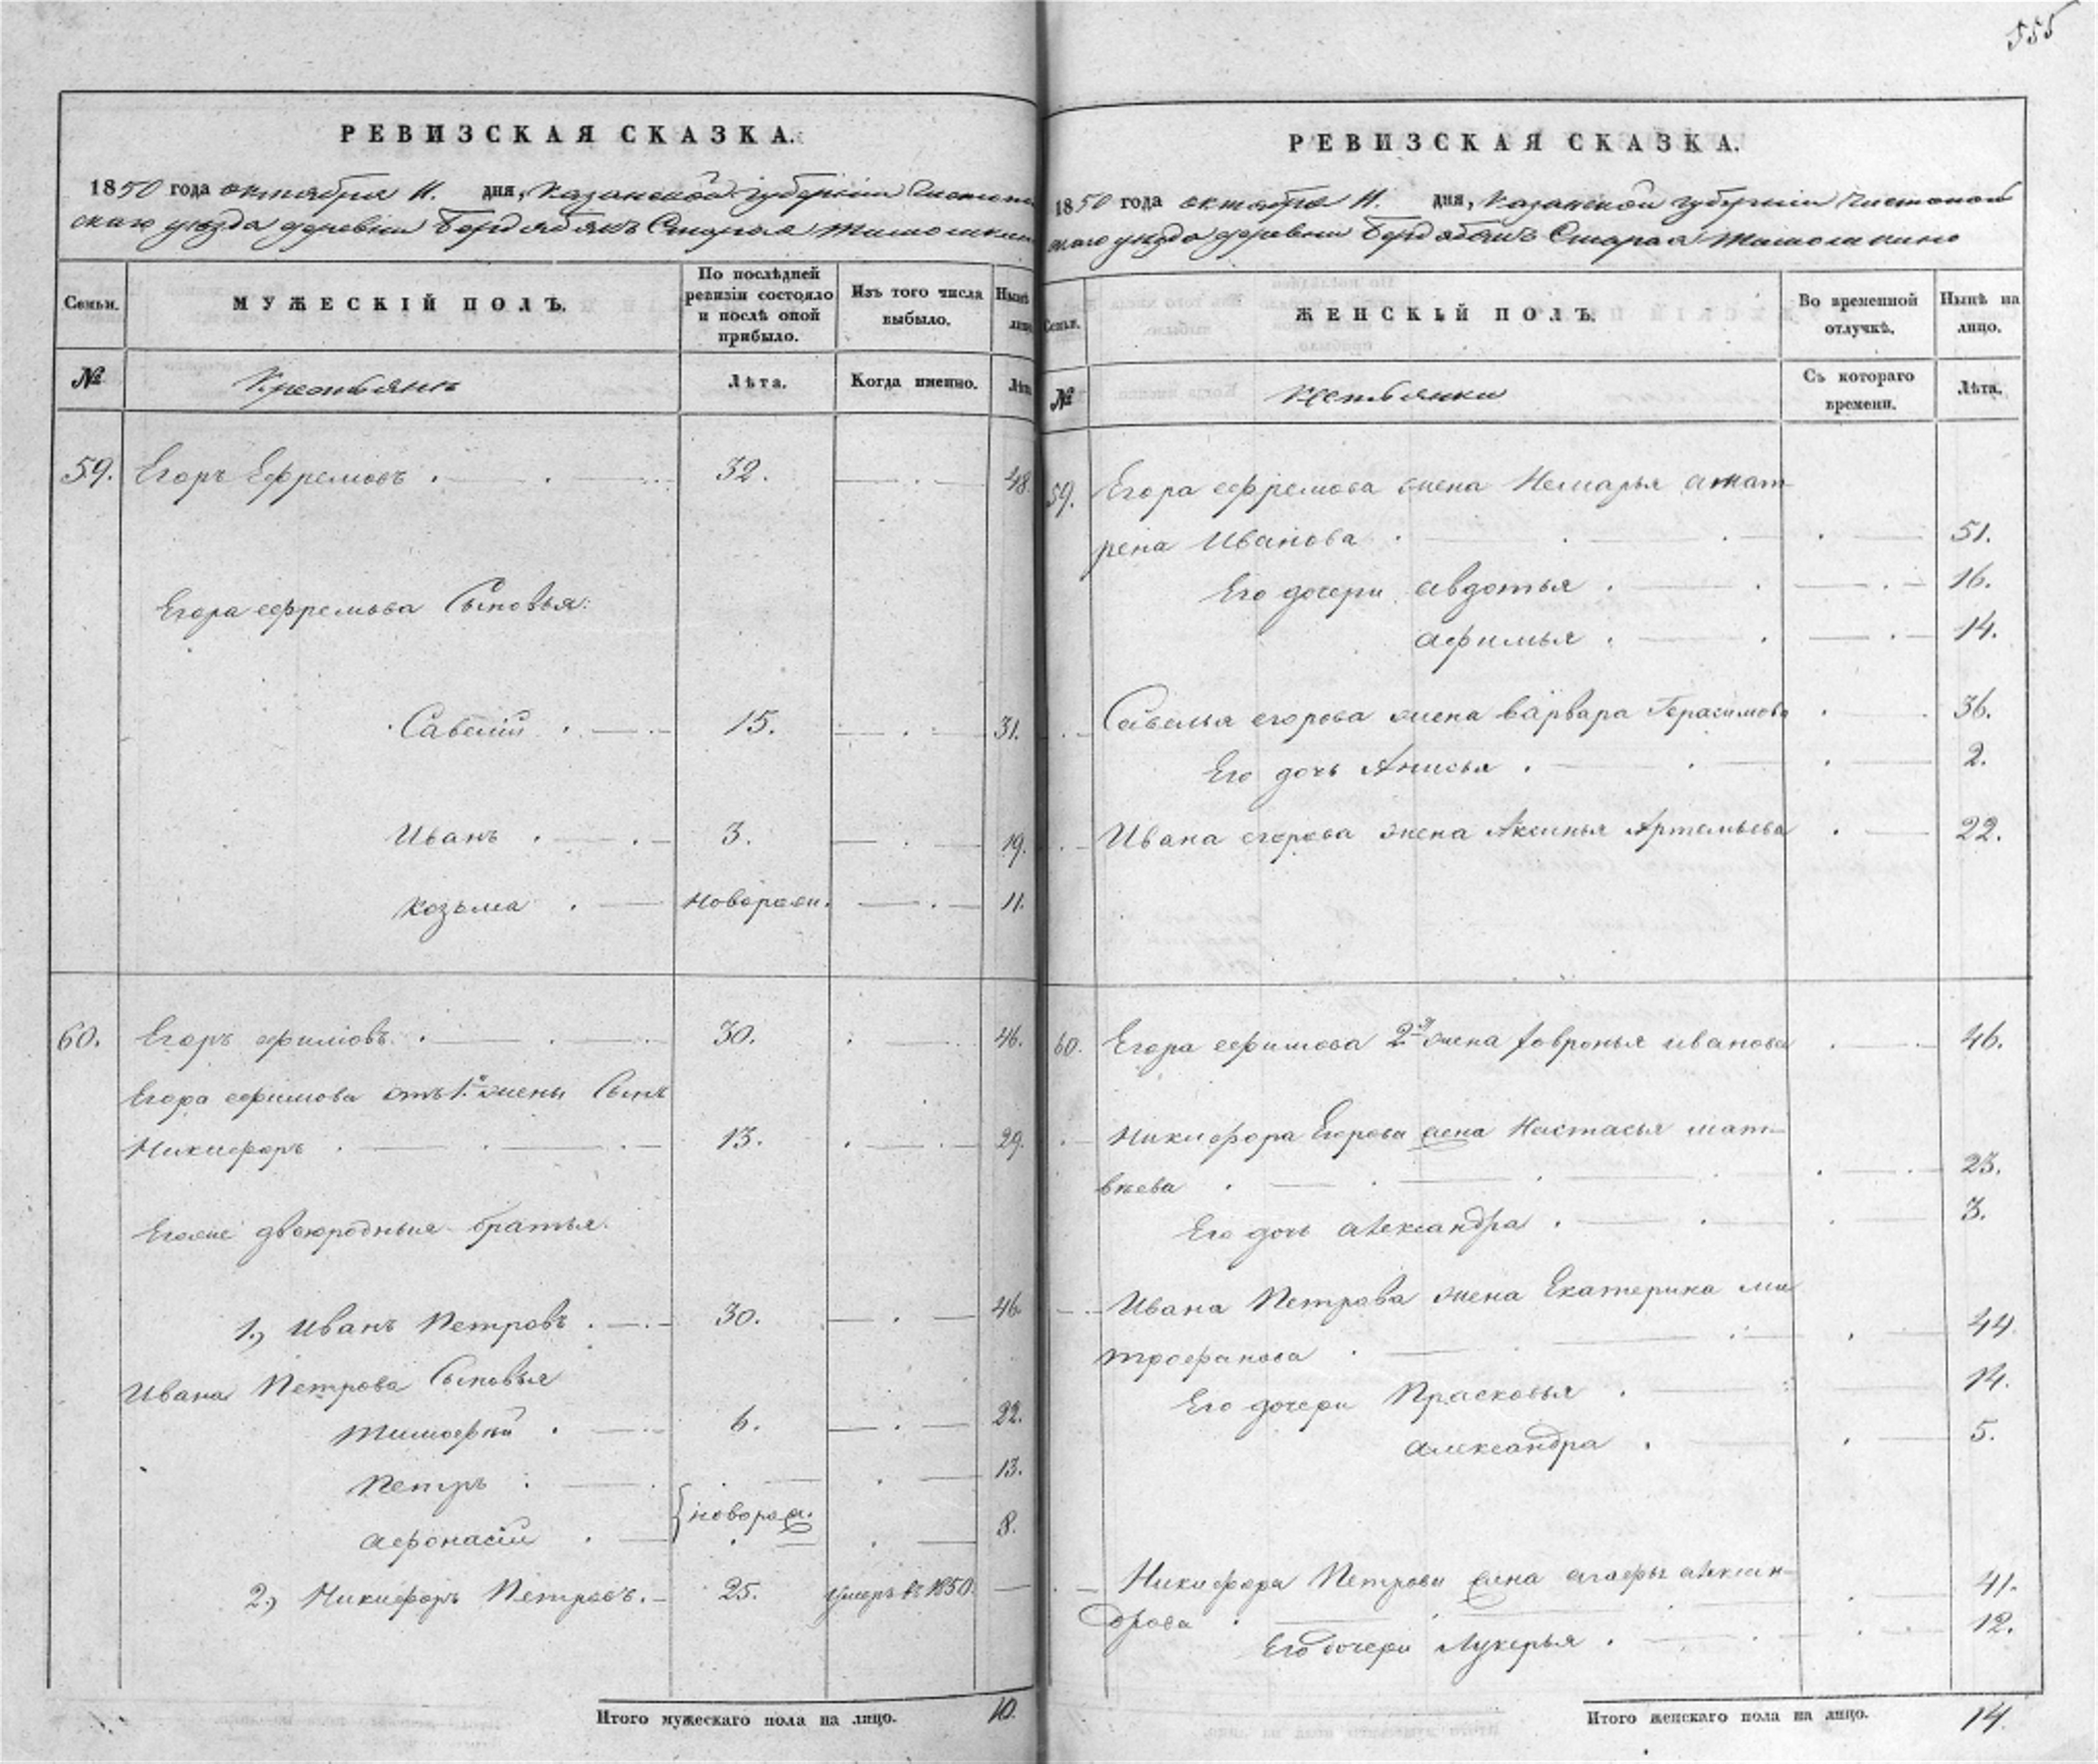 555
РЕВИЗСКАЯ СКАЗКА.
1850 года октября 11. дня, Казанской губерніи Чистопол
скаго уѣзда деревни Старая Тимошкин
Семьи.
МУЖЕСКІЙ ПОЛЪ.
По послѣдней ревизіи состояло и послѣ оной прибыло.
Изъ того числа выбыло.
Нынѣ лицо
№
Крестьянъ
Лѣта.
Когда именно.
Лѣта
59. Егоръ Ефремовъ . 32. 48
Егора Ефремова Сыновья:
Савелій . 15. 31.
Иванъ . 3. 19.
Козьма . новорожден. 11.
60. Егоръ Ефимовъ . 30. 46.
Егора Ефимова отъ 1й жены Сынъ
Никифоръ . 13. 29.
Егоже двоюродныя братья.
1., Иванъ Петровъ . 30. 46.
Ивана Петрова Сыновья
Тимофей . 6. 22.
Петръ . 13.
новорож.
Афонасій . 8.
2., Никифоръ Петровъ. 25. умеръ въ 1850.
Итого мужескаго пола на лицо. 10.
РЕВИЗСКАЯ СКАЗКА.
1850 года октября 11. дня, Казанской губерніи Чистопол
скаго уѣзда деревни Старая Тимошкино
Семьи.
ЖЕНСКІЙ ПОЛЪ.
Во временной отлучкѣ.
Нынѣ на лицо.
№
Съ котораго времени.
Лѣта.
59. Егора Ефремова жена Мат
рена Иванова . 51.
Его дочери Авдотья . 16.
Афимья . 14.
Савелья Егорова жена Варвара Герасимова . 36.
Его дочь Анисья . 2.
Ивана Егорова жена Аксинья Артемьева . 22.
60. Егора Ефимова 2я жена Февронья Иванова . 46.
Никифора Егорова жена Настасья Мат-
вѣева . 23.
Его дочь Александра . 3.
Ивана Петрова жена Екатерина Ми
трофанова . 44
Его дочери Прасковья . 14.
Александра . 5.
Никифора Петрова жена Агафья Алексан-
дрова . 41.
Его дочери Лукерья . 12.
Итого женскаго пола на лицо. 14.